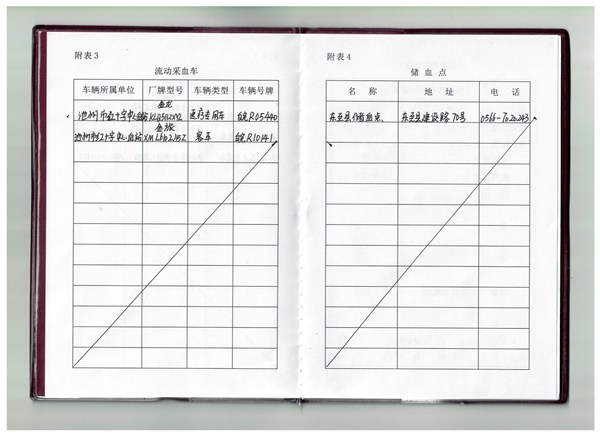 附表3
流动采血车
车辆所属单位 厂牌型号 车辆类型 车辆号牌
金龙
池州市红十字中心血站 医疗专用车 皖R05440
金旅
池州市红十字中心血站 客车 皖R10141
附表4
储血点
名称 地址 电话
东至县储血点 东至县建设路70号 0566-7020243